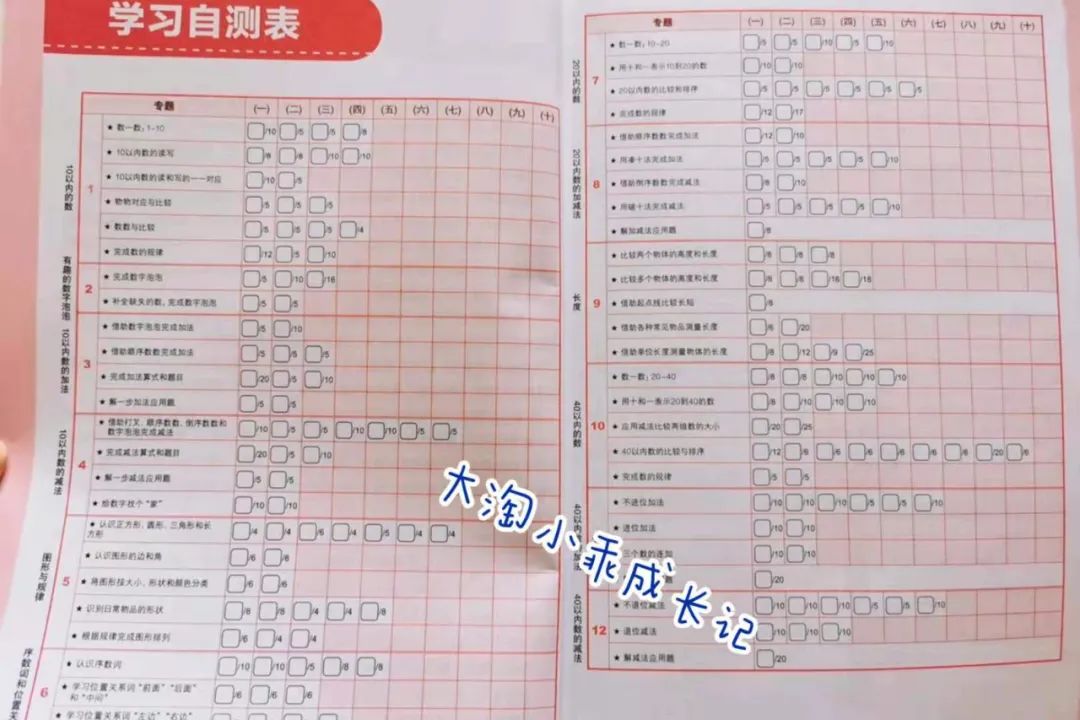 学习自测表
专题 (一) (二) (三) (四) (五) (六) (七) (八) (九) (十)
10以内的数
1
★ 数一数：1-10 /10 /5 /5 /8
★ 10以内数的读写 /8 /8 /10 /10
★ 10以内数的读和写的一一对应 /10 /5
★ 物物对应与比较 /5 /5 /5
★ 数数与比较 /5 /5 /5 /4
★ 完成数的规律 /12 /5 /10
有趣的数字泡泡
2
★ 完成数字泡泡 /5 /10 /16
★ 补全缺失的数，完成数字泡泡 /5 /5
10以内数的加法
3
★ 借助数字泡泡完成加法 /5 /10
★ 借助顺序数数完成加法 /5 /5 /5
★ 完成加法算式和题目 /20 /5 /10
★ 解一步加法应用题 /5 /5
10以内数的减法
4
★ 借助打叉、顺序数数、倒序数数和
数字泡泡完成减法 /10 /5 /5 /10 /10 /5 /5
★ 完成减法算式和题目 /20 /5 /10
★ 解一步减法应用题 /5 /5
★ 给数字找个“家” /10 /10
图形与规律
5
★ 认识正方形、圆形、三角形和长
方形 /4 /4 /6 /4 /5 /4 /4
★ 认识图形的边和角 /6 /8
★ 将图形按大小、形状和颜色分类 /6 /6
★ 识别日常物品的形状 /8 /8 /4 /4 /8
★ 根据规律完成图形排列 /6 /4 /4
序数词和位置关
6
★ 认识序数词 /10 /10 /5 /8 /8
★ 学习位置关系词“前面”“后面”
和“中间” /6 /6 /6
★ 学习位置关系词“左边”“右边”
专题 (一) (二) (三) (四) (五) (六) (七) (八) (九) (十)
20以内的数
7
★ 数一数：10-20 /5 /5 /10 /5 /10
★ 用十和一表示10到20的数 /10 /10
★ 20以内数的比较和排序 /5 /5 /5 /5 /5 /5
★ 完成数的规律 /12 /17
20以内数的加减法
8
★ 借助顺序数数完成加法 /12 /10
★ 用凑十法完成加法 /5 /5 /5 /5 /10
★ 借助倒序数数完成减法 /8 /10
★ 用破十法完成减法 /5 /5 /5 /5 /10
★ 解加减法应用题 /8
长度
9
★ 比较两个物体的高度和长度 /6 /8 /8
★ 比较多个物体的高度和长度 /6 /8 /16 /16
★ 借助起点线比较长短 /8
★ 借助各种常见物品测量长度 /6 /20
★ 借助单位长度测量物体的长度 /8 /12 /9 /25
40以内的数
10
★ 数一数：20-40 /8 /8 /10 /10 /10
★ 用十和一表示20到40的数 /8 /10 /10 /10
★ 应用减法比较两组数的大小 /20 /25
★ 40以内数的比较与排序 /12 /6 /6 /6 /6 /6 /6 /20 /6
★ 完成数的规律 /5 /5
40以内
★ 不进位加法 /10 /10 /10 /5 /5 /10
★ 进位加法 /10 /10
三个数的连加 /10 /10
/20
40以内数的减法
12
★ 不退位减法 /10 /10 /10 /5 /5 /10
★ 退位减法 /10 /10 /10
★ 解减法应用题 /20
大淘小乖成长记